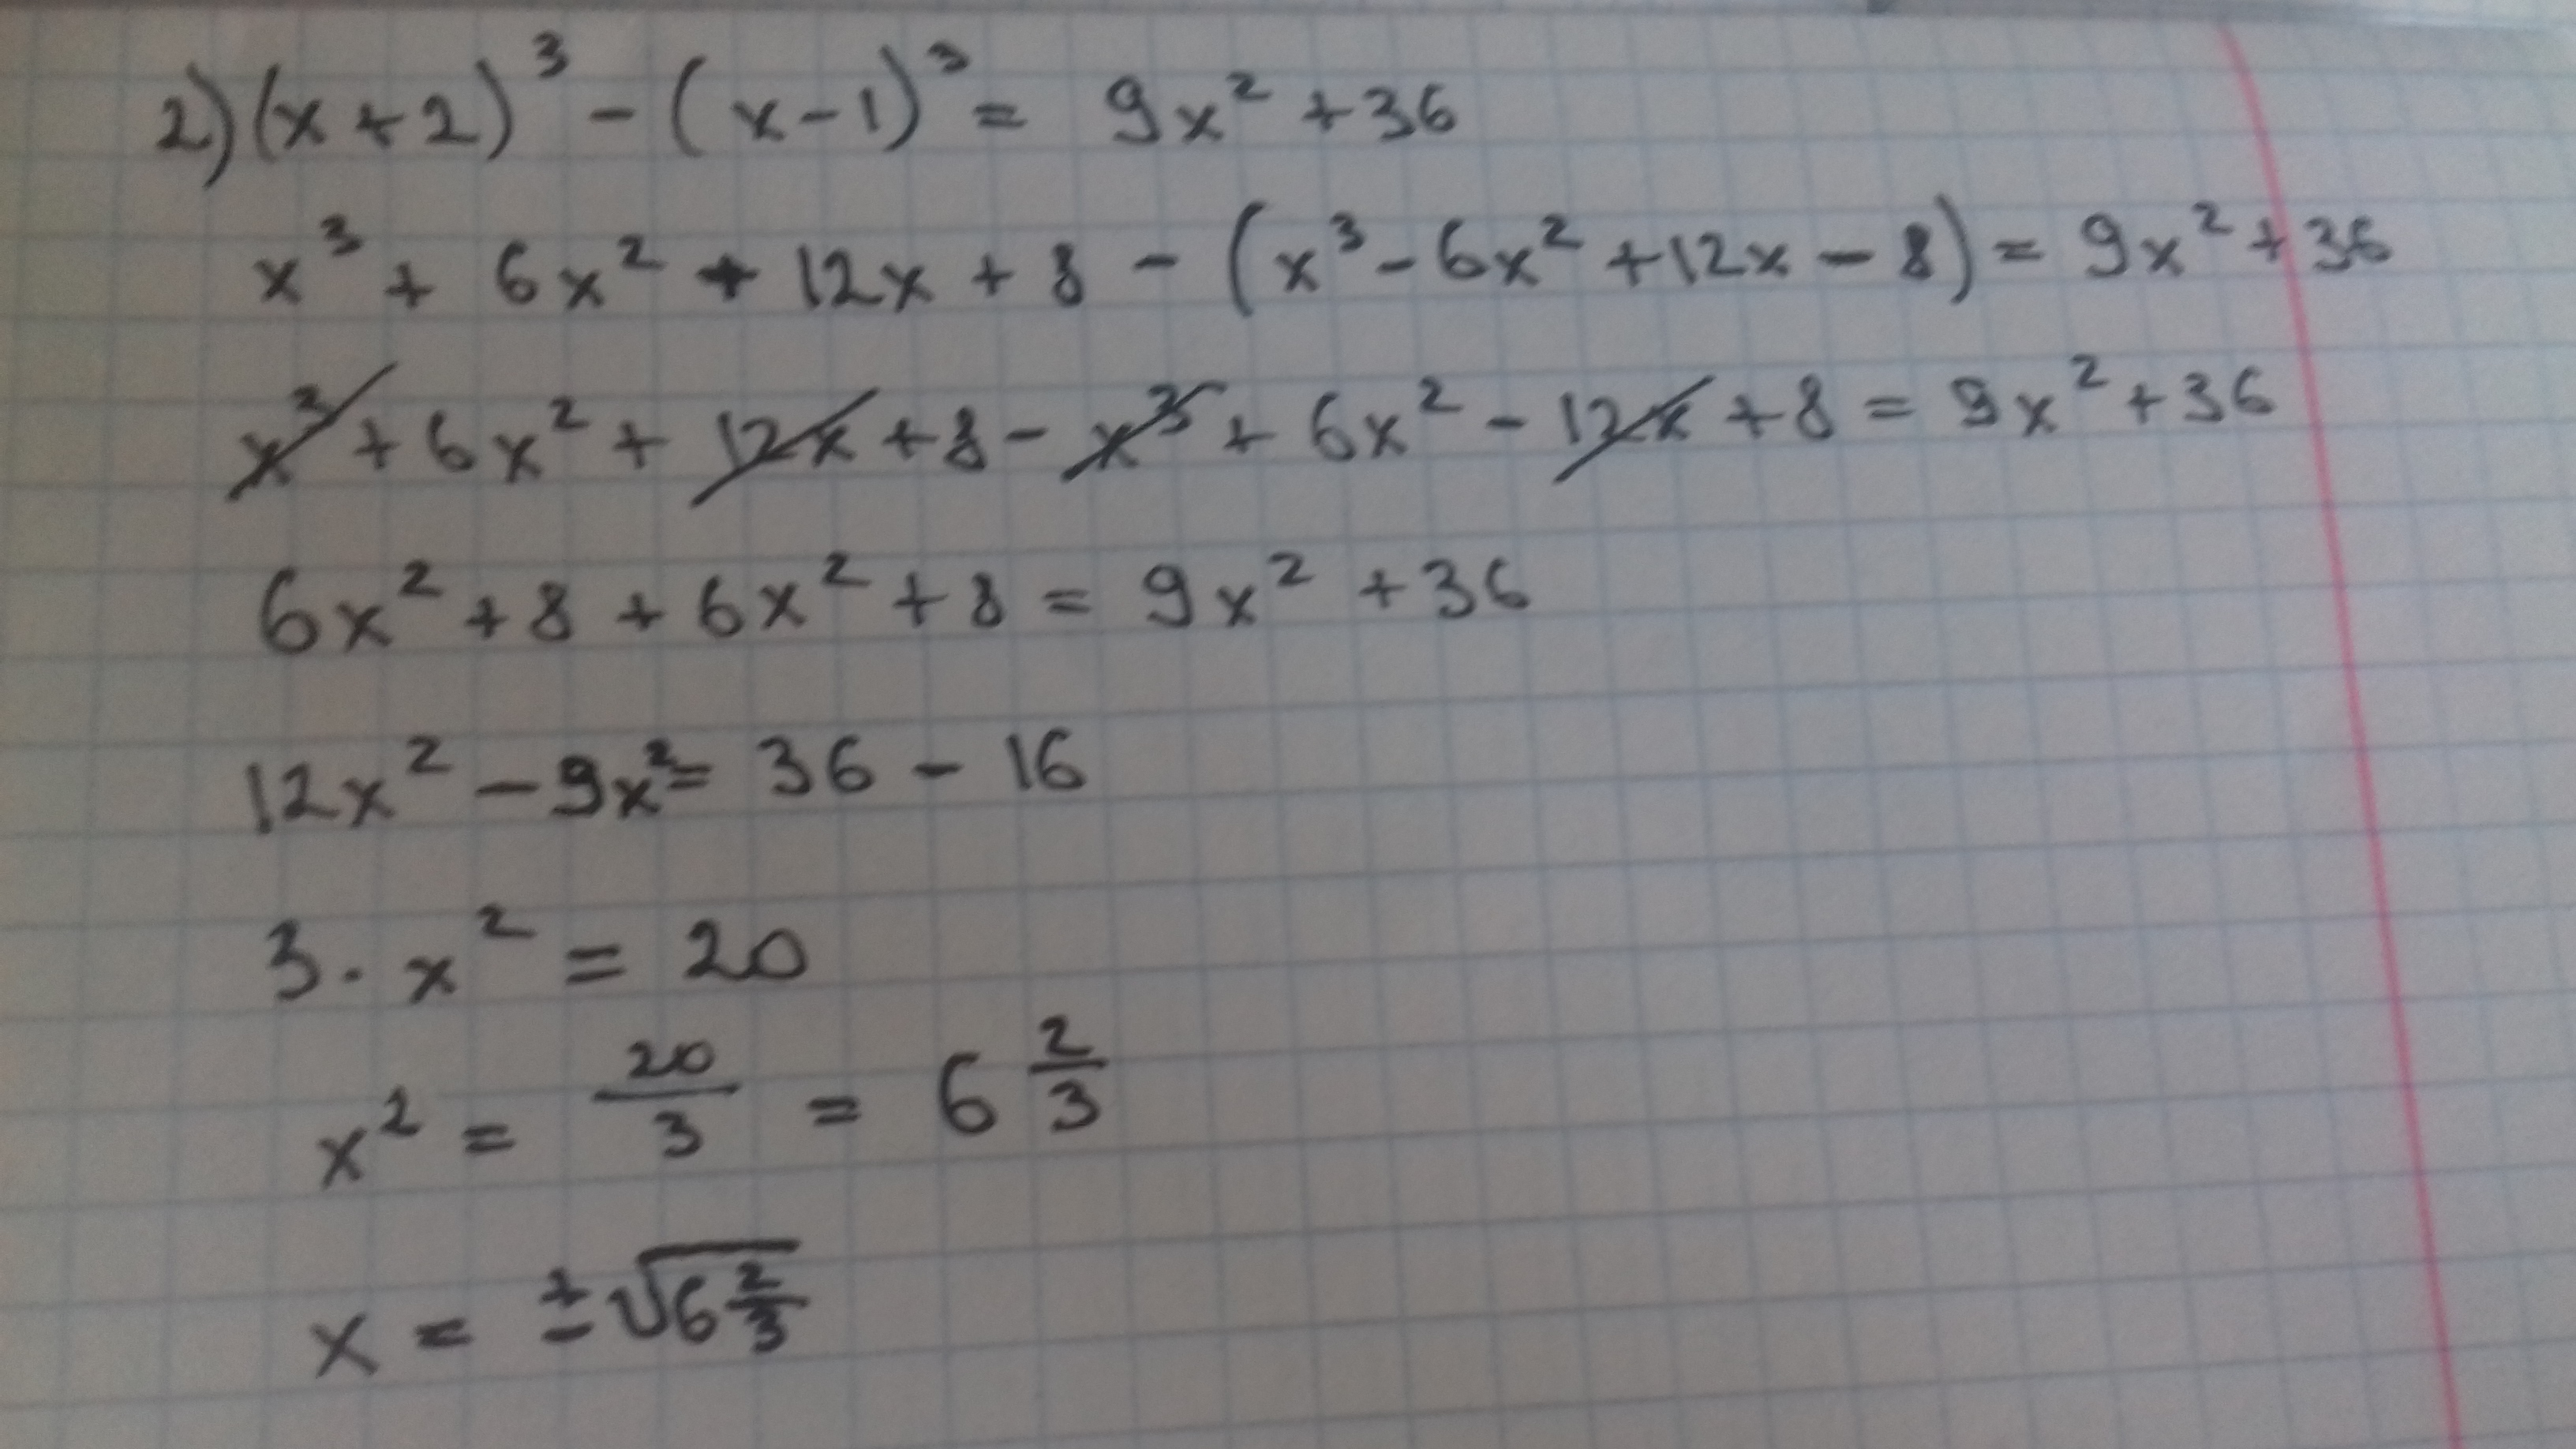 2) (x+2)³ - (x-1)³ = 9x² + 36
x³ + 6x² + 12x + 8 - (x³ - 6x² + 12x - 8) = 9x² + 36
x³ + 6x² + 12x + 8 - x³ + 6x² - 12x + 8 = 9x² + 36
6x² + 8 + 6x² + 8 = 9x² + 36
12x² - 9x² = 36 - 16
3 · x² = 20
x² = 20/3 = 6 2/3
x = ±√6 2/3